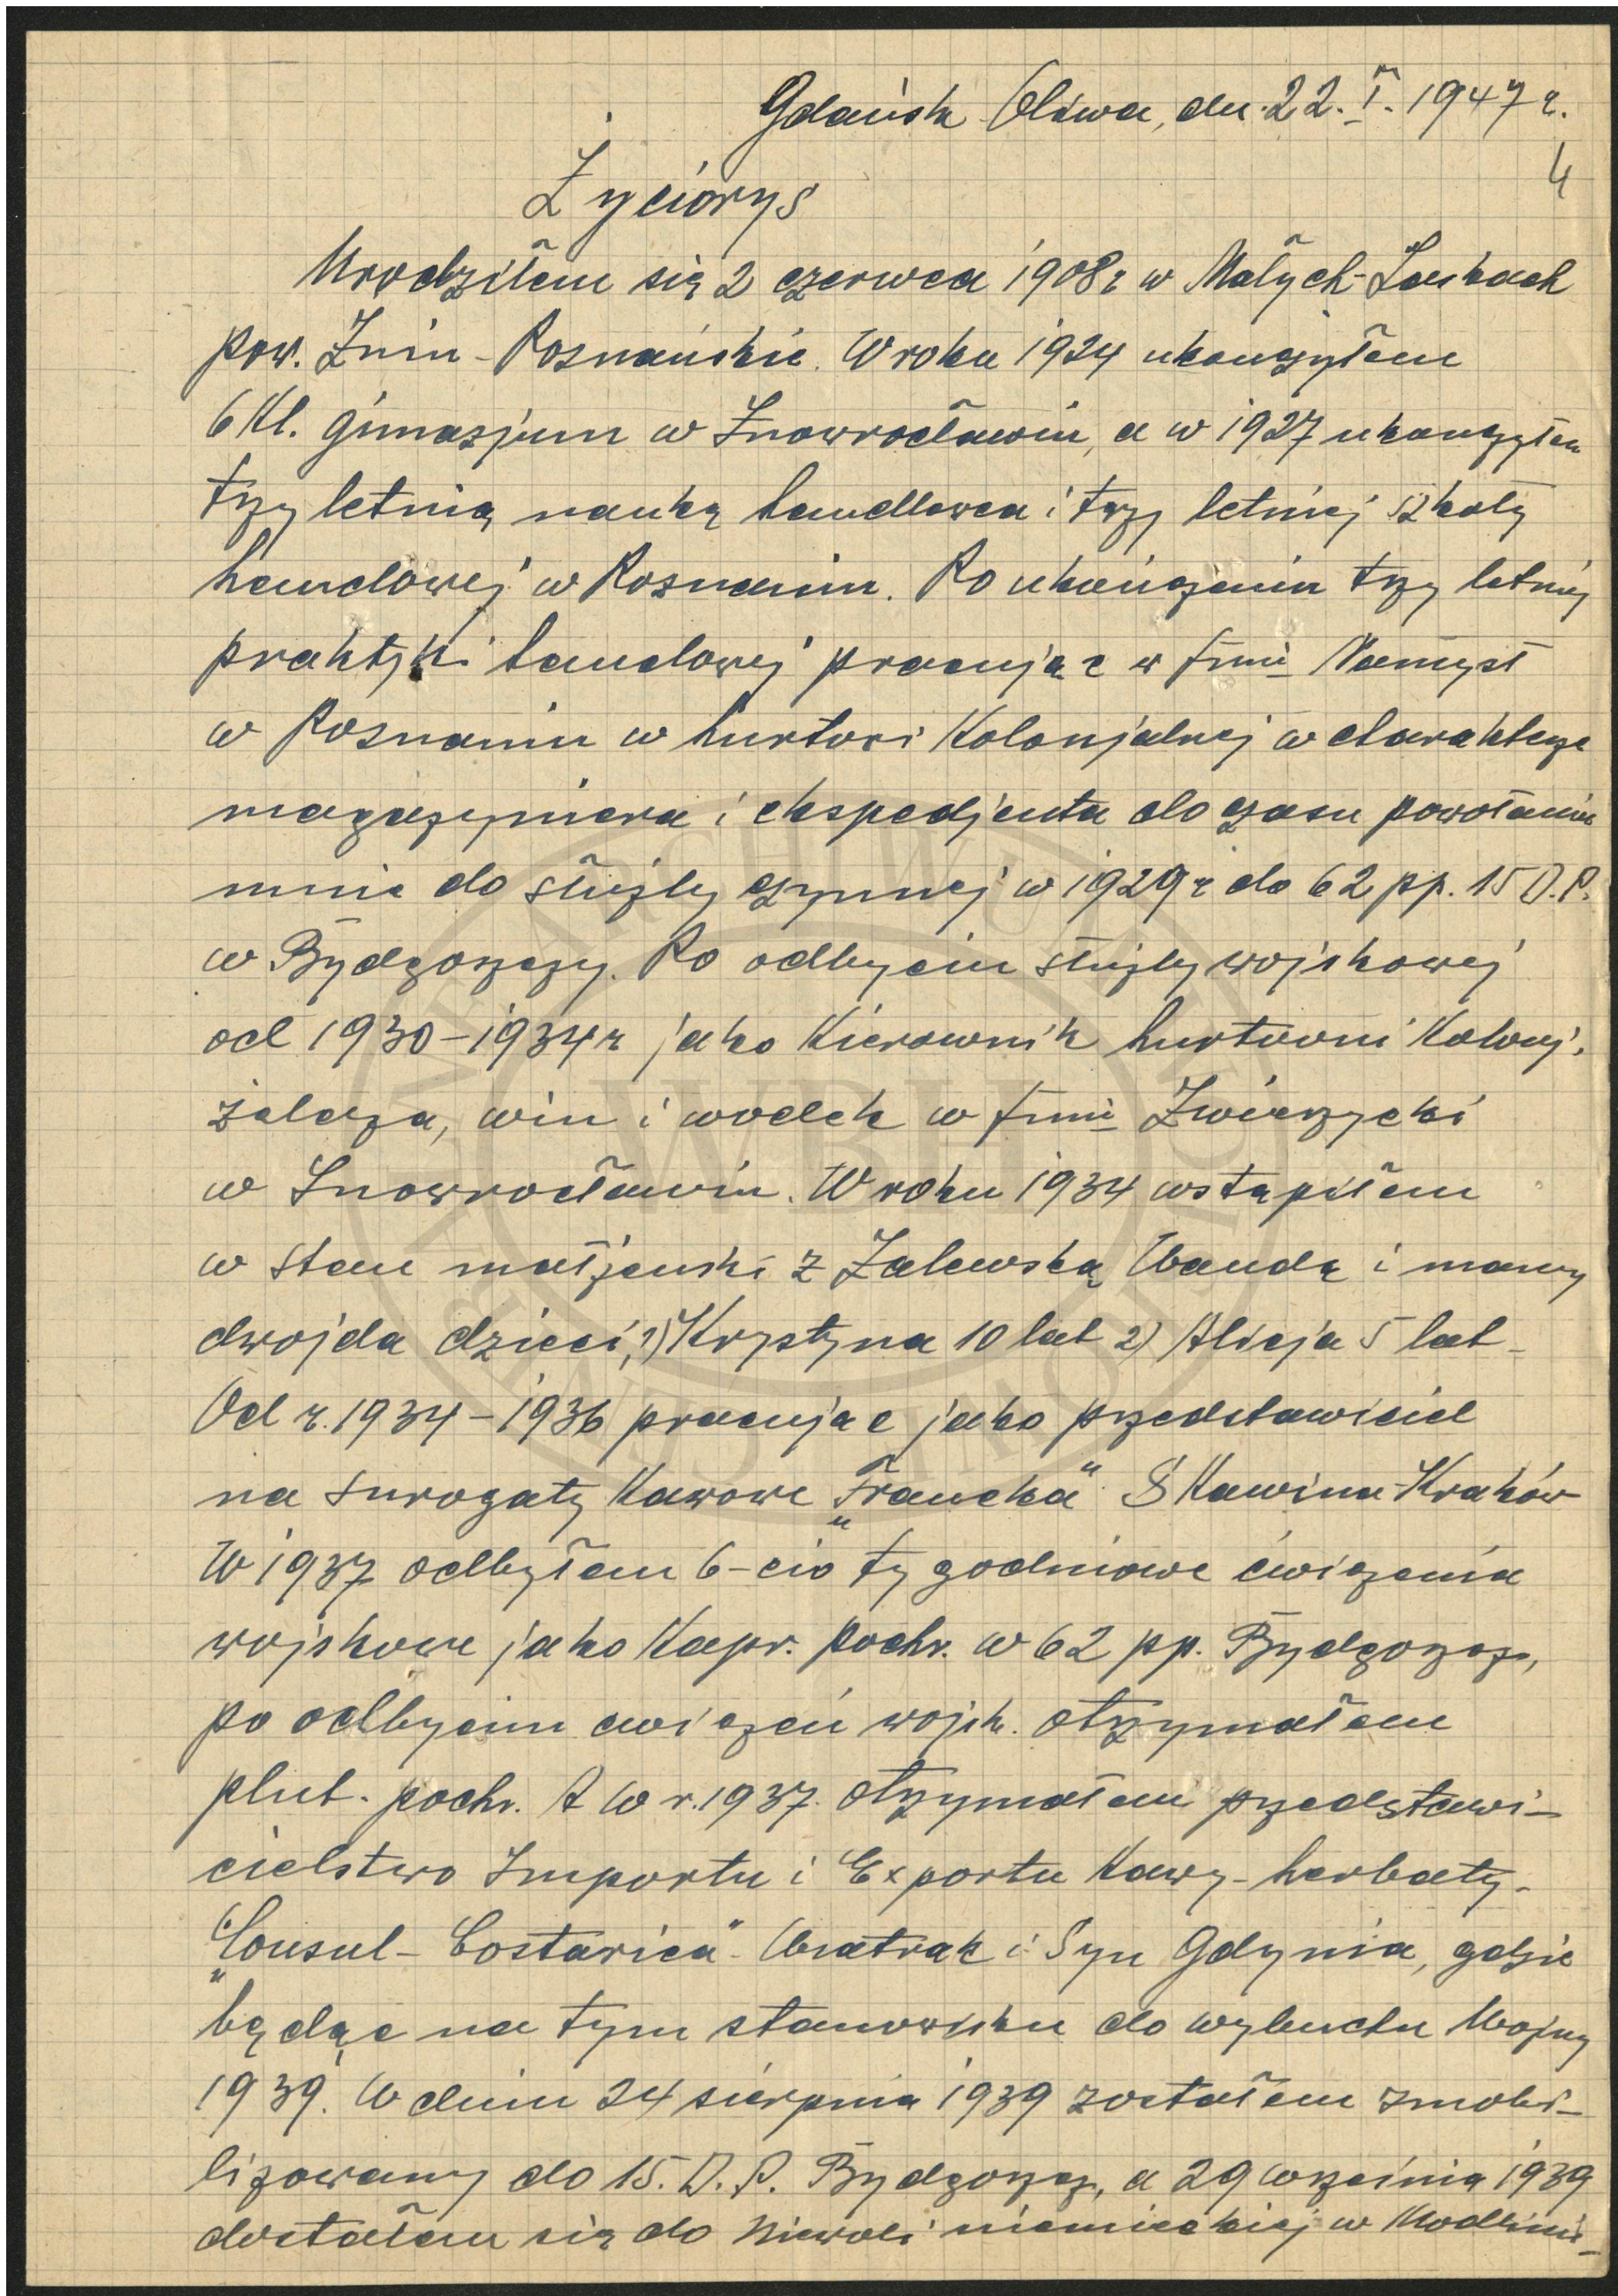 Gdańsk Oliwa, dn. 22. I. 1947 r.
4
Życiorys
Urodziłem się 2 czerwca 1908 r w Małych-Laskach
pow. Żnin - Poznańskie. W roku 1924 ukończyłem
6 Kl. gimnazjum w Inowrocławiu, a w 1927 ukończyłem
trzy letnią nauką handlowca i trzy letniej szkoły
handlowej w Poznaniu. Po ukończeniu trzy letniej
praktyki handlowej pracując w firmie Namysł
w Poznaniu w hurtowi Kolonjalnej w charakterze
magazyniera i ekspedjenta do czasu powołania
mnie do służby czynnej w 1929 r do 62 pp. 15 D.P.
w Bydgoszczy. Po odbyciu służby wojskowej
od 1930-1934 r jako Kierownik hurtowni Kolonj.
żelaza, win i wódek w firmie Zwierzycki
w Inowrocławiu. W roku 1934 wstąpiłem
w stan małżeński z Zalewską Wandą i mamy
dwojda dzieci, 1) Krystyna 10 lat 2) Alicja 5 lat -
Od r. 1934-1936 pracując jako przedstawiciel
na surogaty Kawowe „Francka" Skawina-Kraków
W 1937 odbyłem 6-cio tygodniowe ćwiczenia
wojskowe jako Kapr. podchr. w 62 pp. Bydgoszcz,
po odbyciu ćwiczeń wojsk. otrzymałem
plut. pochr. A w r. 1937. otrzymałem przedstawi-
cielstwo Importu i Exportu Kawy - herbaty -
„Consul - Costarica" - i Syn Gdynia, gdzie
będąc na tym stanowisku do wybuchu Wojny
1939. W dniu 24 sierpnia 1939 zostałem zmobi-
lizowany do 15. D.P. Bydgoszcz, a 29 września 1939
dostałem się do Niewoli niemieckiej w Modlinie -
WBH